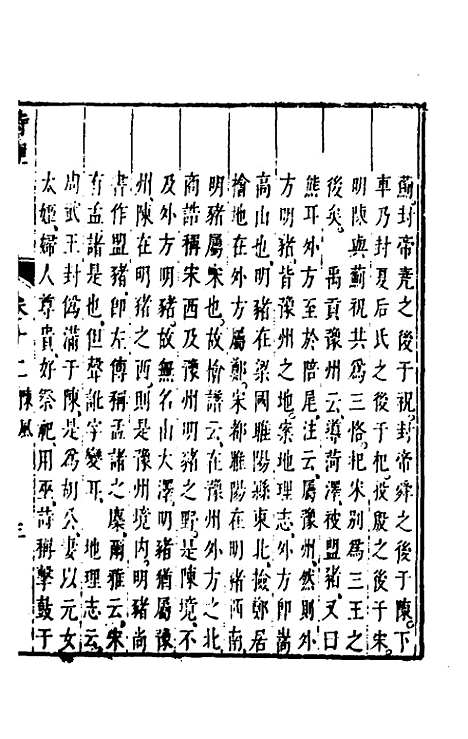 薊封帝堯之後于祝封帝舜之後于陳下
車乃封夏后氏之後于杞投殷之後于宋
明陳與薊祝共爲三恪杞宋別爲三王之
後矣　禹貢豫州云導菏澤被盟豬又曰
熊耳外方至於陪尾注云屬豫州然則外
方明豬皆豫州之地案地理志外方卽嵩
高山也明豬在梁國睢陽縣東北檢鄭居
檜地在外方屬鄭宋都睢陽在明豬西南
明豬屬宋也故檜譜云在豫州外方之北
商誥稱宋西及豫州明豬之野是陳境不
及外方明豬故無名山大澤明豬猶屬豫
州陳在明豬之西則是豫州境內明豬尚
書作盟豬卽左傳稱孟諸之麋爾雅云宋
有孟諸是也但聲訛字變耳　地理志云
周武王封嬀滿于陳是爲胡公妻以元女
太姬婦人尊貴好祭祀用巫詩稱擊鼓于
卷十二陳風　三